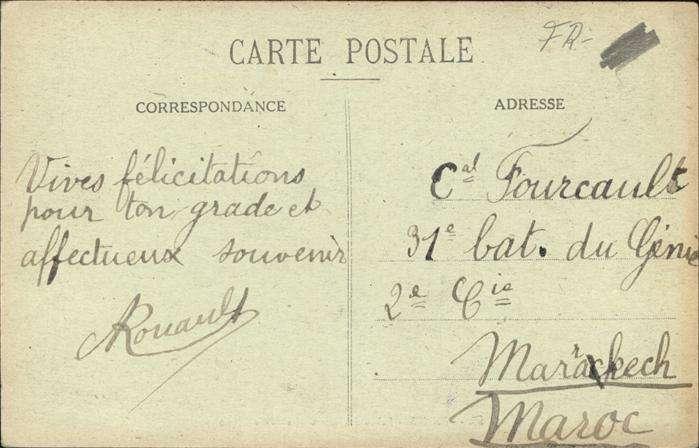 CARTE POSTALE
FR-
CORRESPONDANCE
ADRESSE
Vives félicitations
pour ton grade et
affectueux souvenir
Rouault
Cal Fourcault
31e bat. du Génie
2e Cie
Marrackech
Maroc